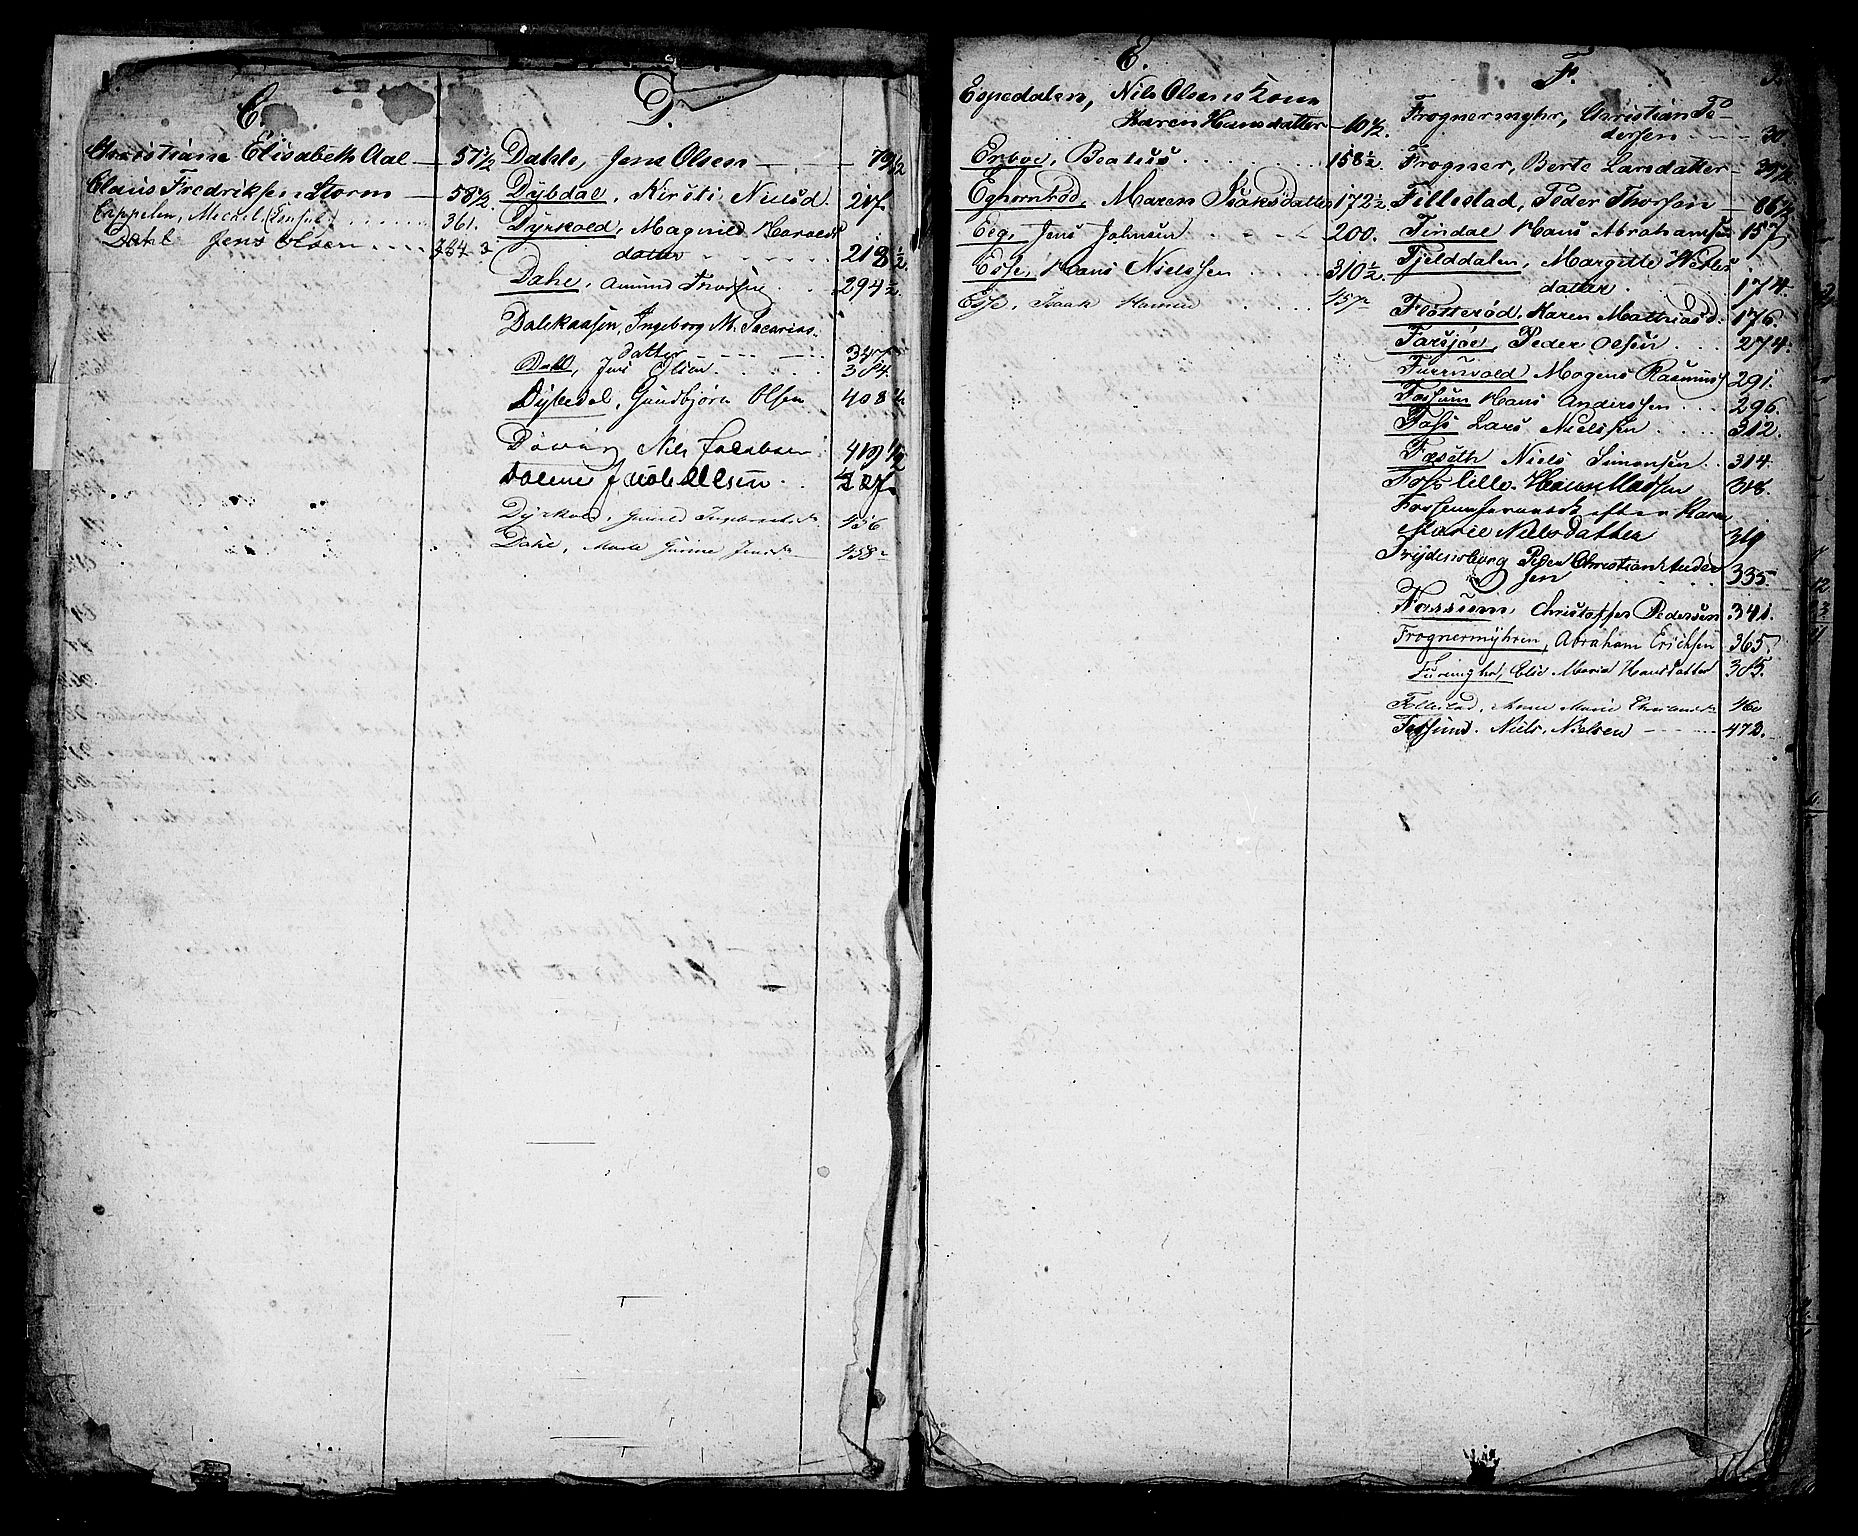 C.
Christiane Elisabeth Aal — 57½
Claus Fredriksen Storm — 58½
Cappelen, Michel 361.
Dahl Jens Olsen
D.
Dahle, Jens Olsen — 79½
Dybdal, Kirsti Nielsd. 217
Dyrkold, Magnild Haralds
datter 218½
Dahle, Amund Thorsen 294½
Dalekaasen, Ingeborg M. Sacarias
datter 347
Dahl, Jens Olsen 384.
Dybedal, Gundbjørn Olsen 408½
Nils Jacobsen 419½
427
Dyrkold, 456
Dahle, Marte 458
E.
Espedalen, Nils Olsens Kone
Karen Hansdatter — 10½
Enboe, Beatus 158½
Eghornrød, Maren Isaksdatter 172½
Eeg, Jens Johnsen 200.
Esse, Hans Nielssen 310½
Isaak Hansen 457
F.
Frognermyhr, Christian Pe-
dersen 30.
Frogner, Berte Larsdatter 37½
Fillestad, Peder Thorsen 86½
Findal Hans Abrahamsen 157
Fjelddalen, Margitte Wetles
datter 174
Flotterød, Karen Mathiasd. 176.
Farsjøe, Peder Olsen 274.
Furuvald Mogens Rasmuss 291.
Fossum Hans Anderssen 296.
Foss Lars Nielssen 312.
Fæseth Niels Simonsen 314.
Foss lille. Hans Madsen 318.
Fossum efter Karen
Marie Nielsdatter 319
Frydensborg Peder Christian Ander
sen 335.
Fossum, Christopher Pedersen 341.
Frognermyhren, Abraham Ericksen 365.
Furumyhr, Elie Maria Hansdatter 385.
Follestad, Anne Marie 460
Fossum. Niels Nielsen 472.